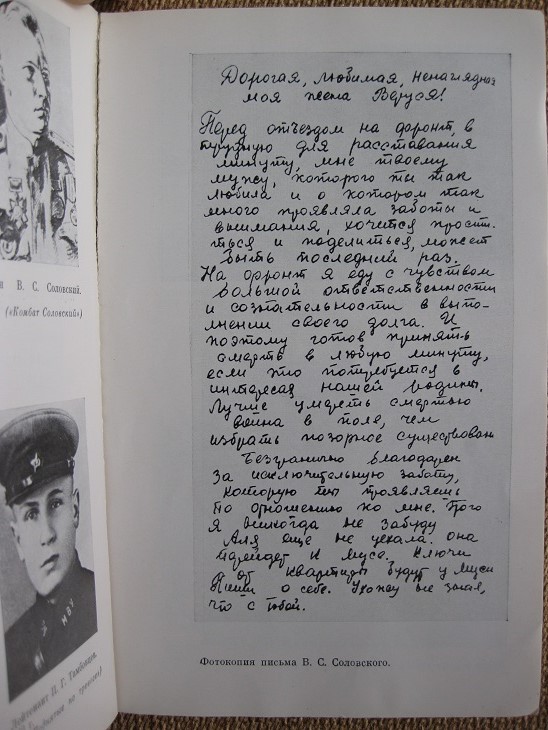 В. С. Соловский.
(«Комбат Соловский»)
Лейтенант П. Г.
Дорогая, любимая, ненаглядная
моя жена Веруся!
Перед отъездом на фронт, в
трудную для расставания
минуту, мне твоему
мужу, которого ты так
любила и о котором так
много проявляла заботы и
внимания, хочется прости-
ться и поделиться, может
быть последний раз.
На фронт я еду с чувством
большой ответственности
и сознательности в выпо-
лнении своего долга. И
поэтому готов принять
смерть в любую минуту,
если это потребуется в
интересах нашей родины.
Лучше умереть смертью
воина в поле, чем
избрать позорное существован
Безгранично благодарен
за исключительную заботу,
которую ты проявляешь
по отношению ко мне. Того
я никогда не забуду
Аля еще не уехала. Она
перейдет к Мусе. Ключи
от квартиры будут у Муси
Пиши о себе. Ухожу не зная,
что с тобой.
Фотокопия письма В. С. Соловского.